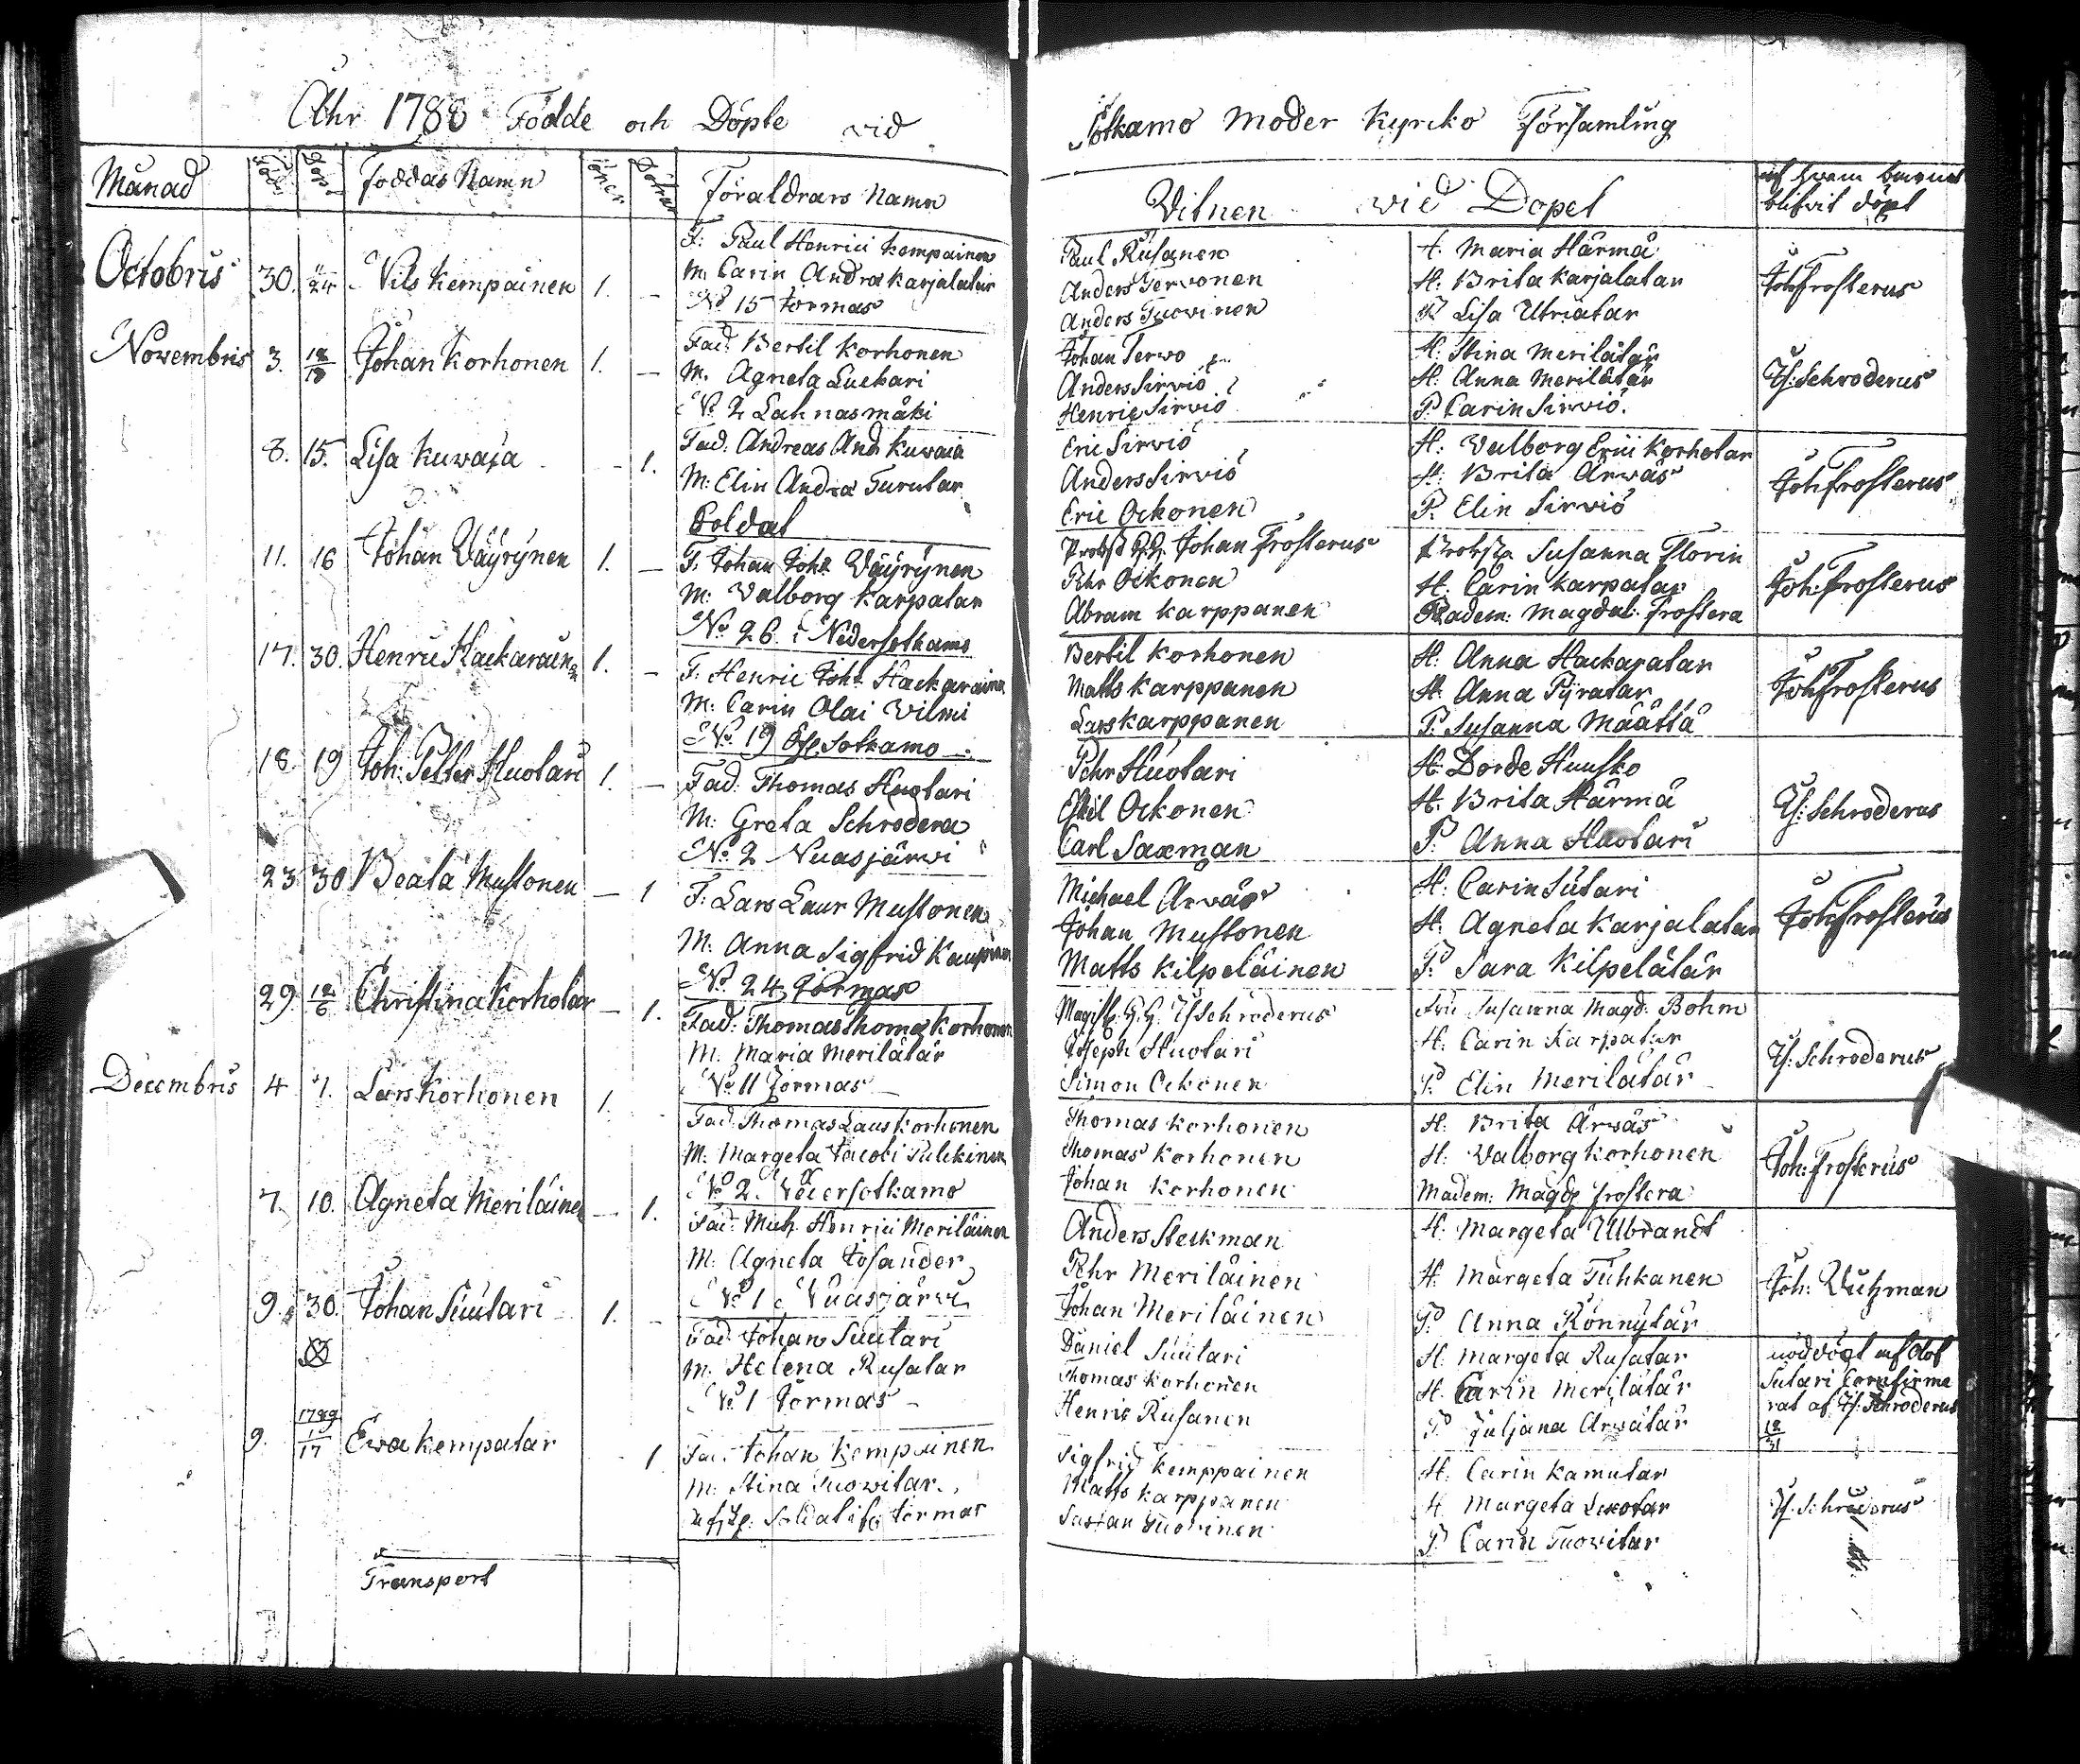 Åhr 1788 Födde och Döpte vid
Sotkamo Moder Kyrcko Församling
Månad Född Döpt Foddas Namn Söner Döttrar Föraldrars Namn
Vitnen vid Dopet
af hvem barnet
blifvit döpt
Octobris 30. 11/24 Nils Kempainen 1. –
F: Paul Henrici Kempainen
M: Carin Andræ Karjalatar
No 15 Jormas
Paul Rusanen
Anders Terwonen
Anders Tuovinen
H. Maria Härmä
H. Brita Karjalatar
P Lisa Utriatar
Joh Frosterus
Novembris 3. 12/18 Johan Korhonen 1. –
Fad: Bertil Korhonen
M. Agneta Luckari
No 2 Lahnasmäki
Johan Terwo
Anders Sirviö
Henric Sirviö
H: Stina Merilätär
H: Anna Merilätär
P. Carin Sirviö.
Is: Schroderus
8. 15. Lisa Kuwaja – 1.
Fad: Andreas And: Kuwaia
M: Elin Andræ Turutar
Soldat
Eric Sirviö
Anders Sirviö
Eric Ockonen
H: Valborg Erici Korhotar
H: Brita Ärwäs
P. Elin Sirviö
Joh Frosterus
11. 16 Johan Väyrynen 1. –
F. Johan Joh: Väyrynen
M: Valborg Karpatar
No 26. i Nedersotkamo
Probst Johan Frosterus
Pehr Ockonen
Abram Karppanen
Susanna Florin
H. Carin Karpatar
Madem: Magdal: Frostera
Joh: Frosterus
17. 30. Henric Hackarainen 1. –
F: Henric Joh: Hackarainen
M: Carin Olai Vilmi
No 19 Öf: Sotkamo
Bertil Korhonen
Matts Karppanen
Lars Karppanen
H: Anna Hackaratar
H: Anna Pyratar
P. Susanna Määttä
Joh Frosterus
18. 19 Joh: Petter Huotari 1. –
Fad: Thomas Huotari
M: Greta Schrodera
No 2 Nuasjärwi
Pehr Huotari
Eskil Ockonen
Carl Saxman
H: Dorde Huusko
H. Brita Härmä
P. Anna Huotari
Is: Schroderus
23 30 Beata Mustonen – 1
F: Lars Laur Mustonen
M: Anna Sigfrid Kaupinen
No 24 Jormas
Michael Arwäs
Johan Mustonen
Matts Kilpeläinen
H: Carin Sutari
H. Agneta Karjalatar
P. Sara Kilpelätär
Joh Frosterus
29. 12/6 Christina Korhotar – 1.
Fad: Thomas Thomæ Korhonen
M: Maria Merilätär
No 11 Jormas
Magist. Is Schroderus
Joseph Huotari
Simon Ockonen
Fru Susanna Magd: Bohm
H. Carin Karpatar
P Elin Merilätär
Is: Schroderus
Decembris 4 7. Lars Korhonen 1.
Fad: Thomas Laur Korhonen
M: Margeta Jacobi Pulckinen
No 2. Nedersotkamo
Thomas Korhonen
Thomas Korhonen
Johan Korhonen
H. Brita Ärwäs
H: Valborg Korhonen
Madem: Magd: Frostera
Joh: Frosterus
7. 10. Agneta Meriläinen – 1.
Fad: Mich Henrici Meriläinen
M: Agneta Josander
No 1 Nuasjärwi
Anders Steckman
Pehr Meriläinen
Johan Meriläinen
H: Margeta Ulbrandt
H. Margeta Tuhkanen
P. Anna Rönnytär
Joh: Wutzman
9. 30. Johan Suutari 1. –
Fad: Johan Suutari
M. Helena Rusatar
No 1 Jormas
Daniel Suutari
Thomas Korhonen
Henric Rusanen
H. Margeta Rusatar
H. Carin Merilätär
P Juljana Arwätär
nöddöpt af Olof
Sutari Confirme
rat af Is: Schroderus
12/31
9. 1789 1/17 Ewa Kempatar 1
Fad: Johan Kempainen
M: Stina Tuovitar
Soldat ifr Jormas
Sigfrid Kemppainen
Matts Karppanen
Tuovinen
H. Carin Kamutar
H Margeta
P Carin Tuovitar
Is: Schroderus
Transport